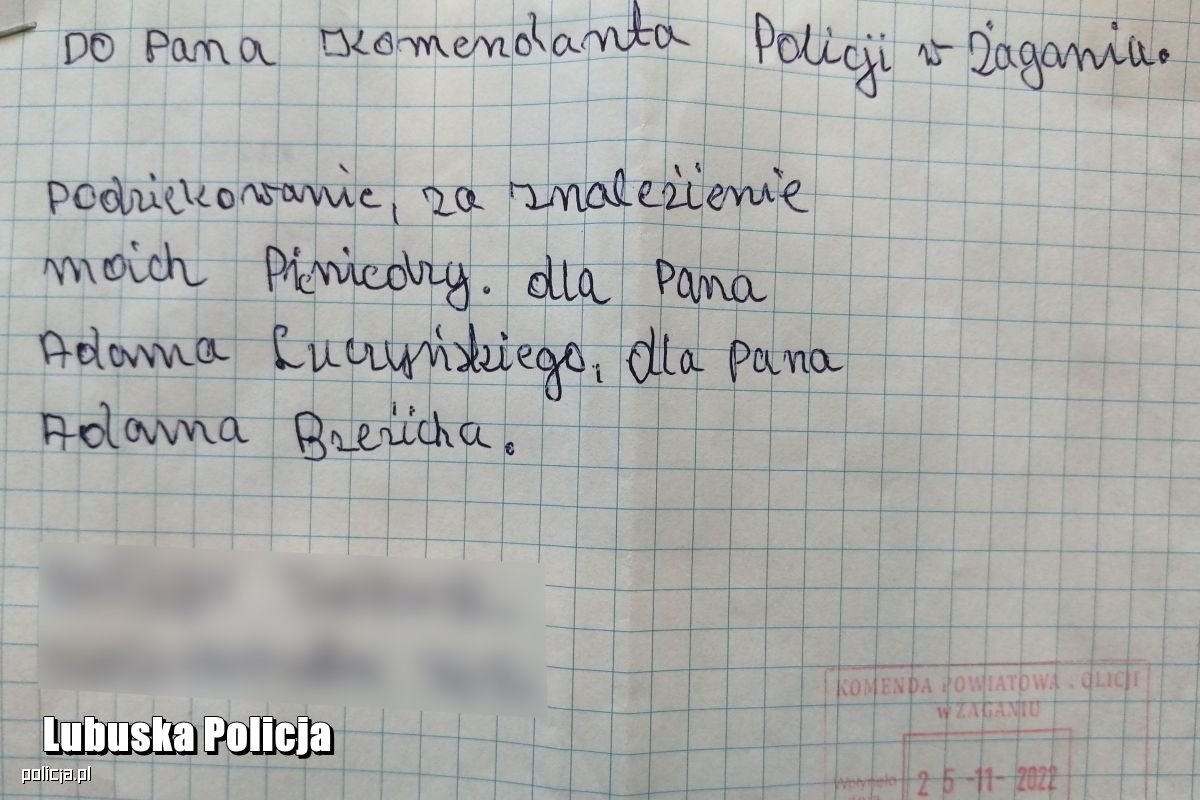 DO Pana Komendanta Policji w Żaganiu.
Podziękowanie, za znaleźienie
moich Pienicdzy. dla Pana
Adama Łuczyńskiego, dla Pana
Adama Brzeźicha.
KOMENDA POWIATOWA POLICJI
W ŻAGANIU
Wpłynęło
25-11-2022
Lubuska Policja
policja.pl